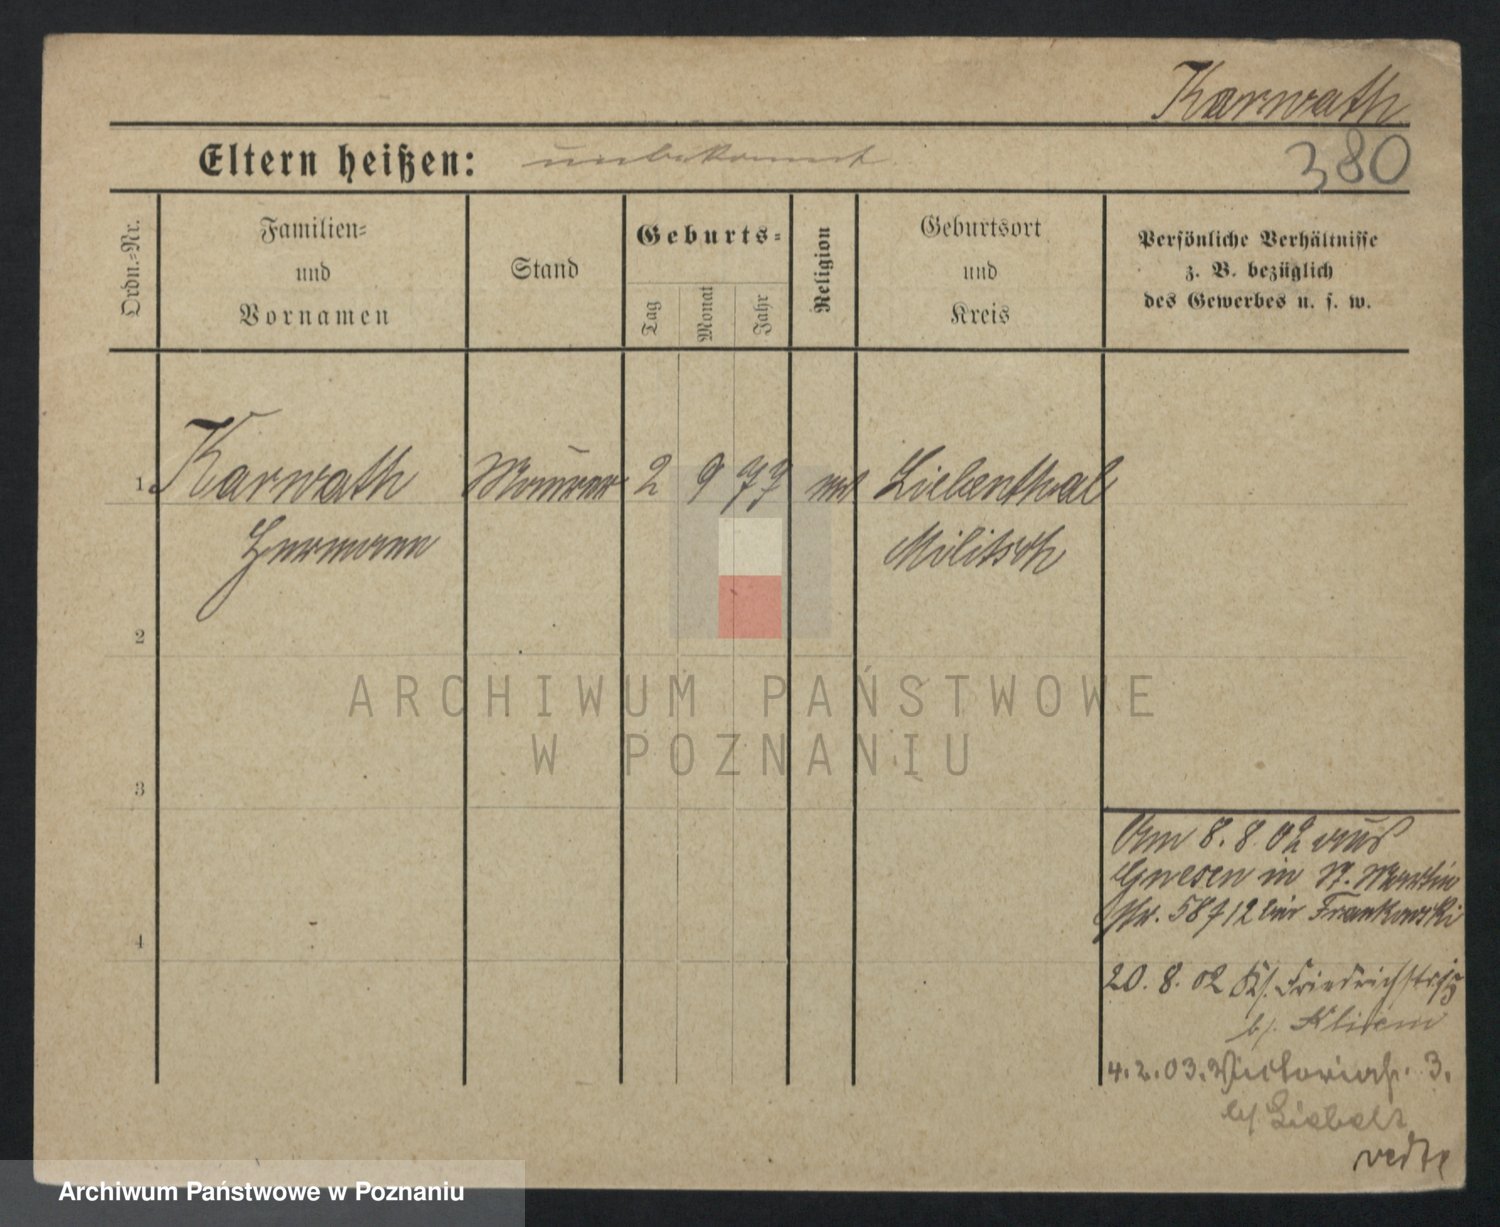 Karwath
Eltern heißen: unbekannt
380
Ordn.-Nr.
Familien-
und
Vornamen
Stand
Geburts-
Tag
Monat
Jahr
Religion
Geburtsort
und
Kreis
Persönliche Verhältnisse
z. B. bezüglich
des Gewerbes u. s. w.
1. Karwath Maurer 2 9 77 Liebenthal
Hermann Militsch
2
3
4
Am 8. 8. 02 aus
Gnesen in St. Martin
Nr. 58 Frankowski
20. 8. 02 Friedrichstr.
b/. Kliem
4. 2. 03. Victoriastr. 3.
b/. Liebelt
ARCHIWUM PAŃSTWOWE
W POZNANIU
Archiwum Państwowe w Poznaniu